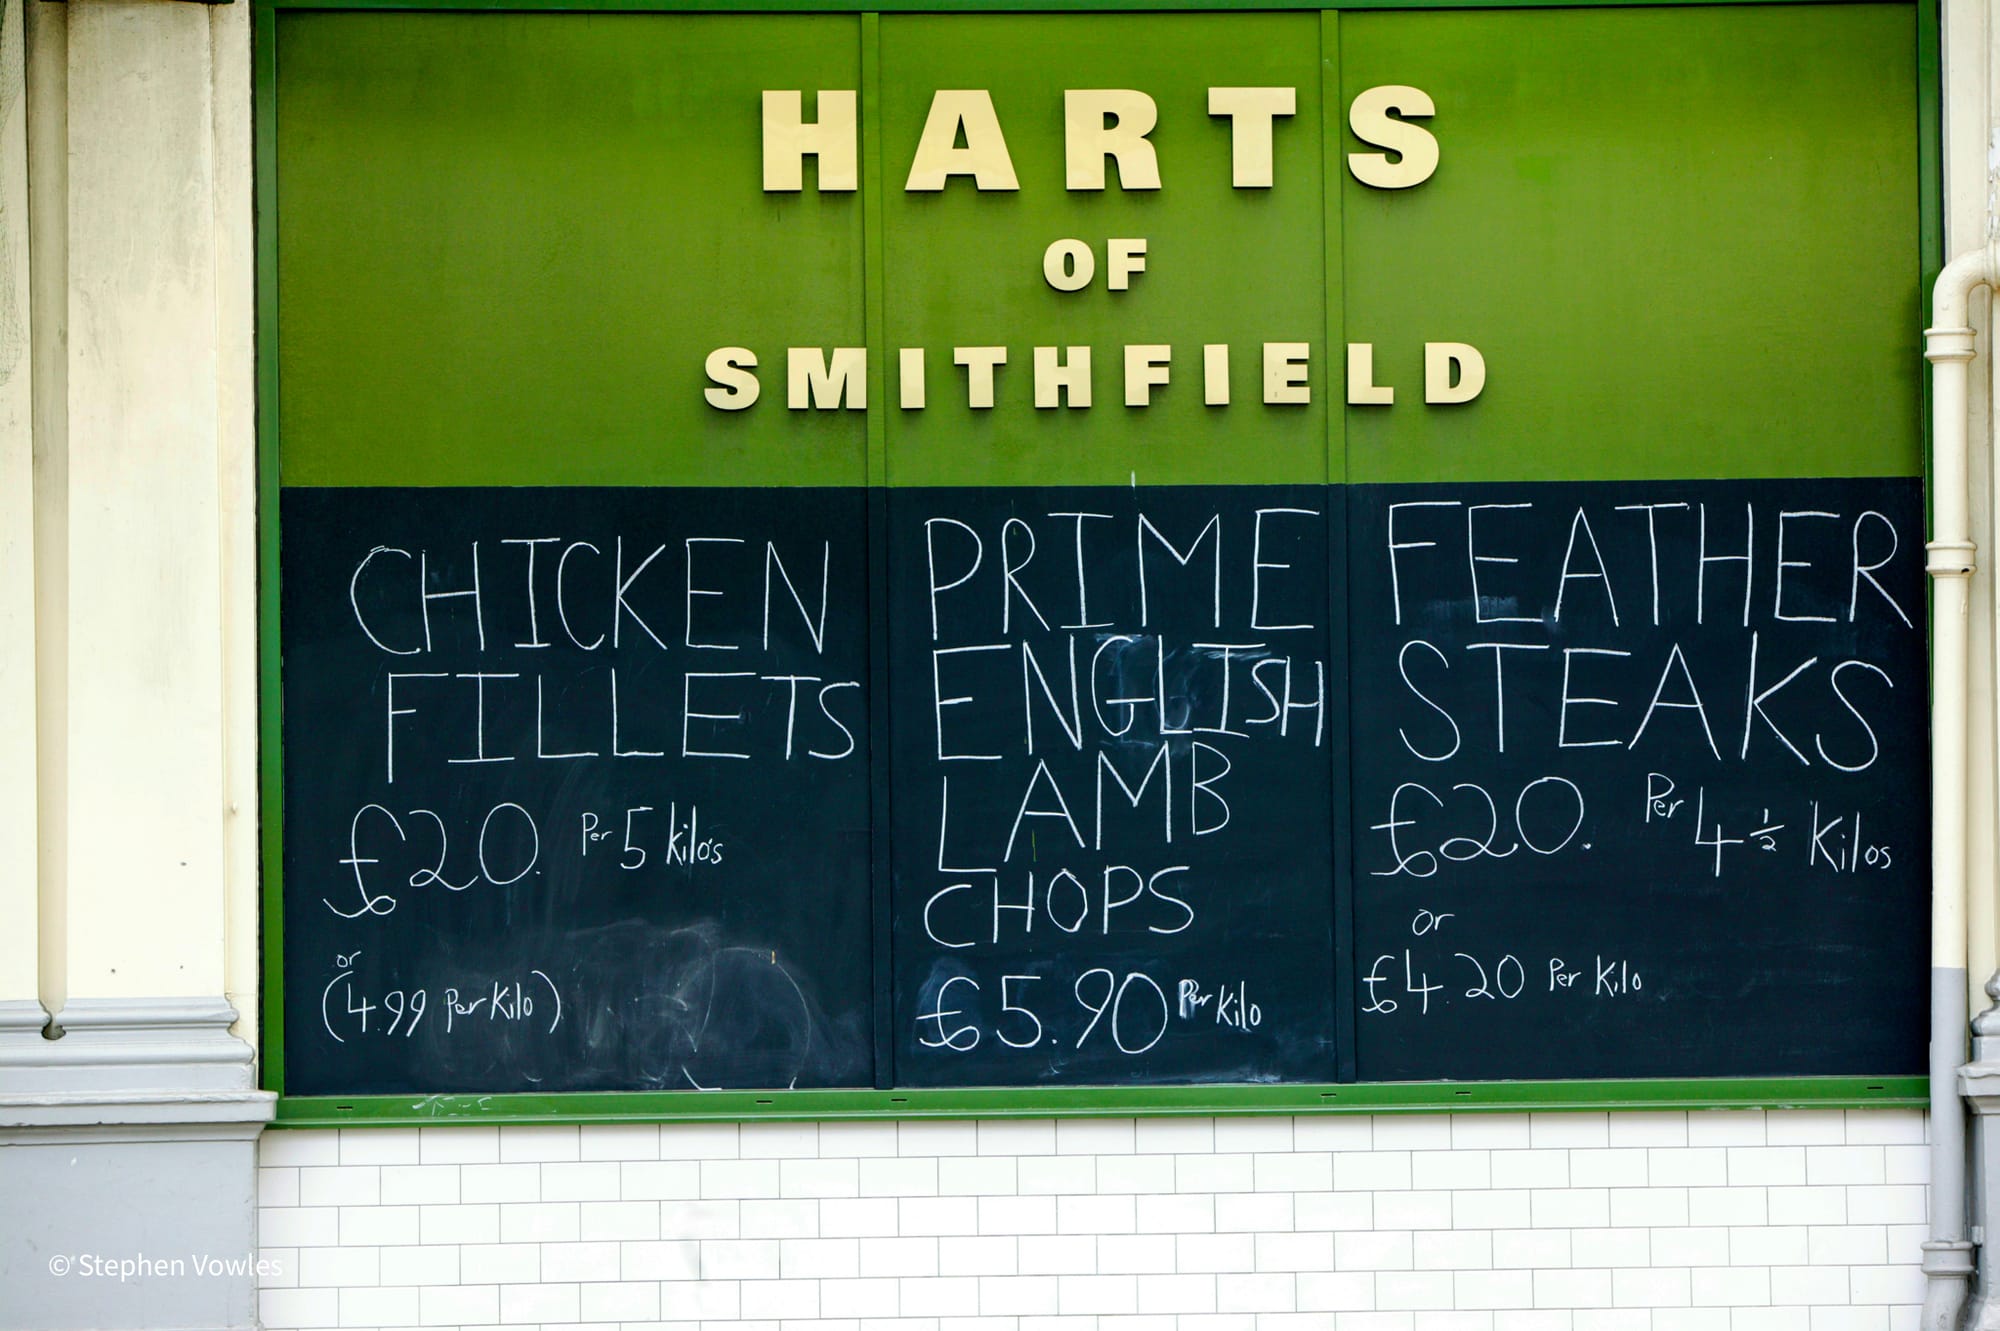 HARTS
OF
SMITHFIELD
CHICKEN
FILLETS
£20. Per 5 kilo's
or
(4.99 Per Kilo)
PRIME
ENGLISH
LAMB
CHOPS
£5.90 Per Kilo
FEATHER
STEAKS
£20. Per 4 ½ Kilos
or
£4.20 Per Kilo
© Stephen Vowles